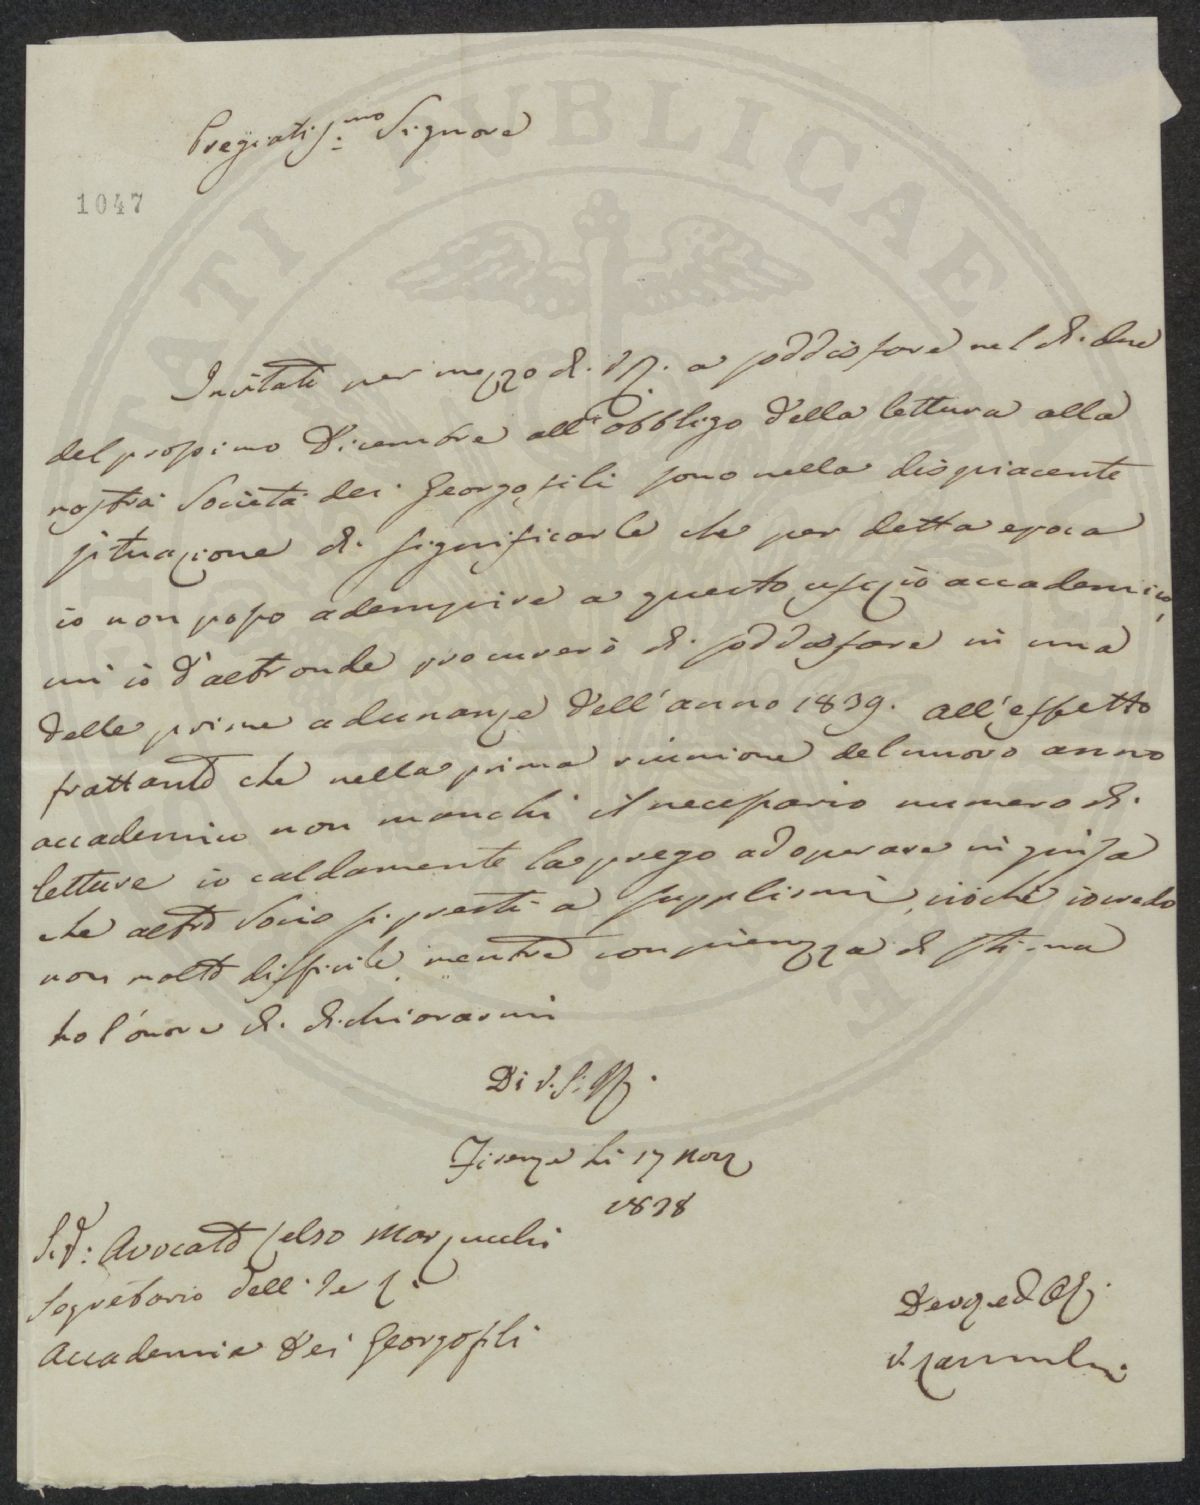 Pregiatis.mo Signore
1047
Invitato per mezzo di a soddisfare nel dì due
del prossimo Dicembre all'obbligo della lettura alla
nostra Società dei Georgofili sono nella dispiacente
situazione di significarle che per detta epoca
io non posso adempire a questo ufizio accademico,
mi io d'altronde procurerò di soddisfare in una
delle prime adunanze dell'anno 1839. all'effetto
frattanto che nella prima riunione del nuovo anno
accademico non manchi il necessario numero di
letture io caldamente la prego ad operare in guisa
che altro Socio si presti a supplirmi, ciò che io credo
non molto difficile, mentre con pienezza di stima
ho l'onore di dichiararmi
Di V. S. Ill.
Firenze li 17 Nov
1838
S.r: Avocato Celso Marzucchi
Segretario dell' I e R.
Accademia dei Georgofili